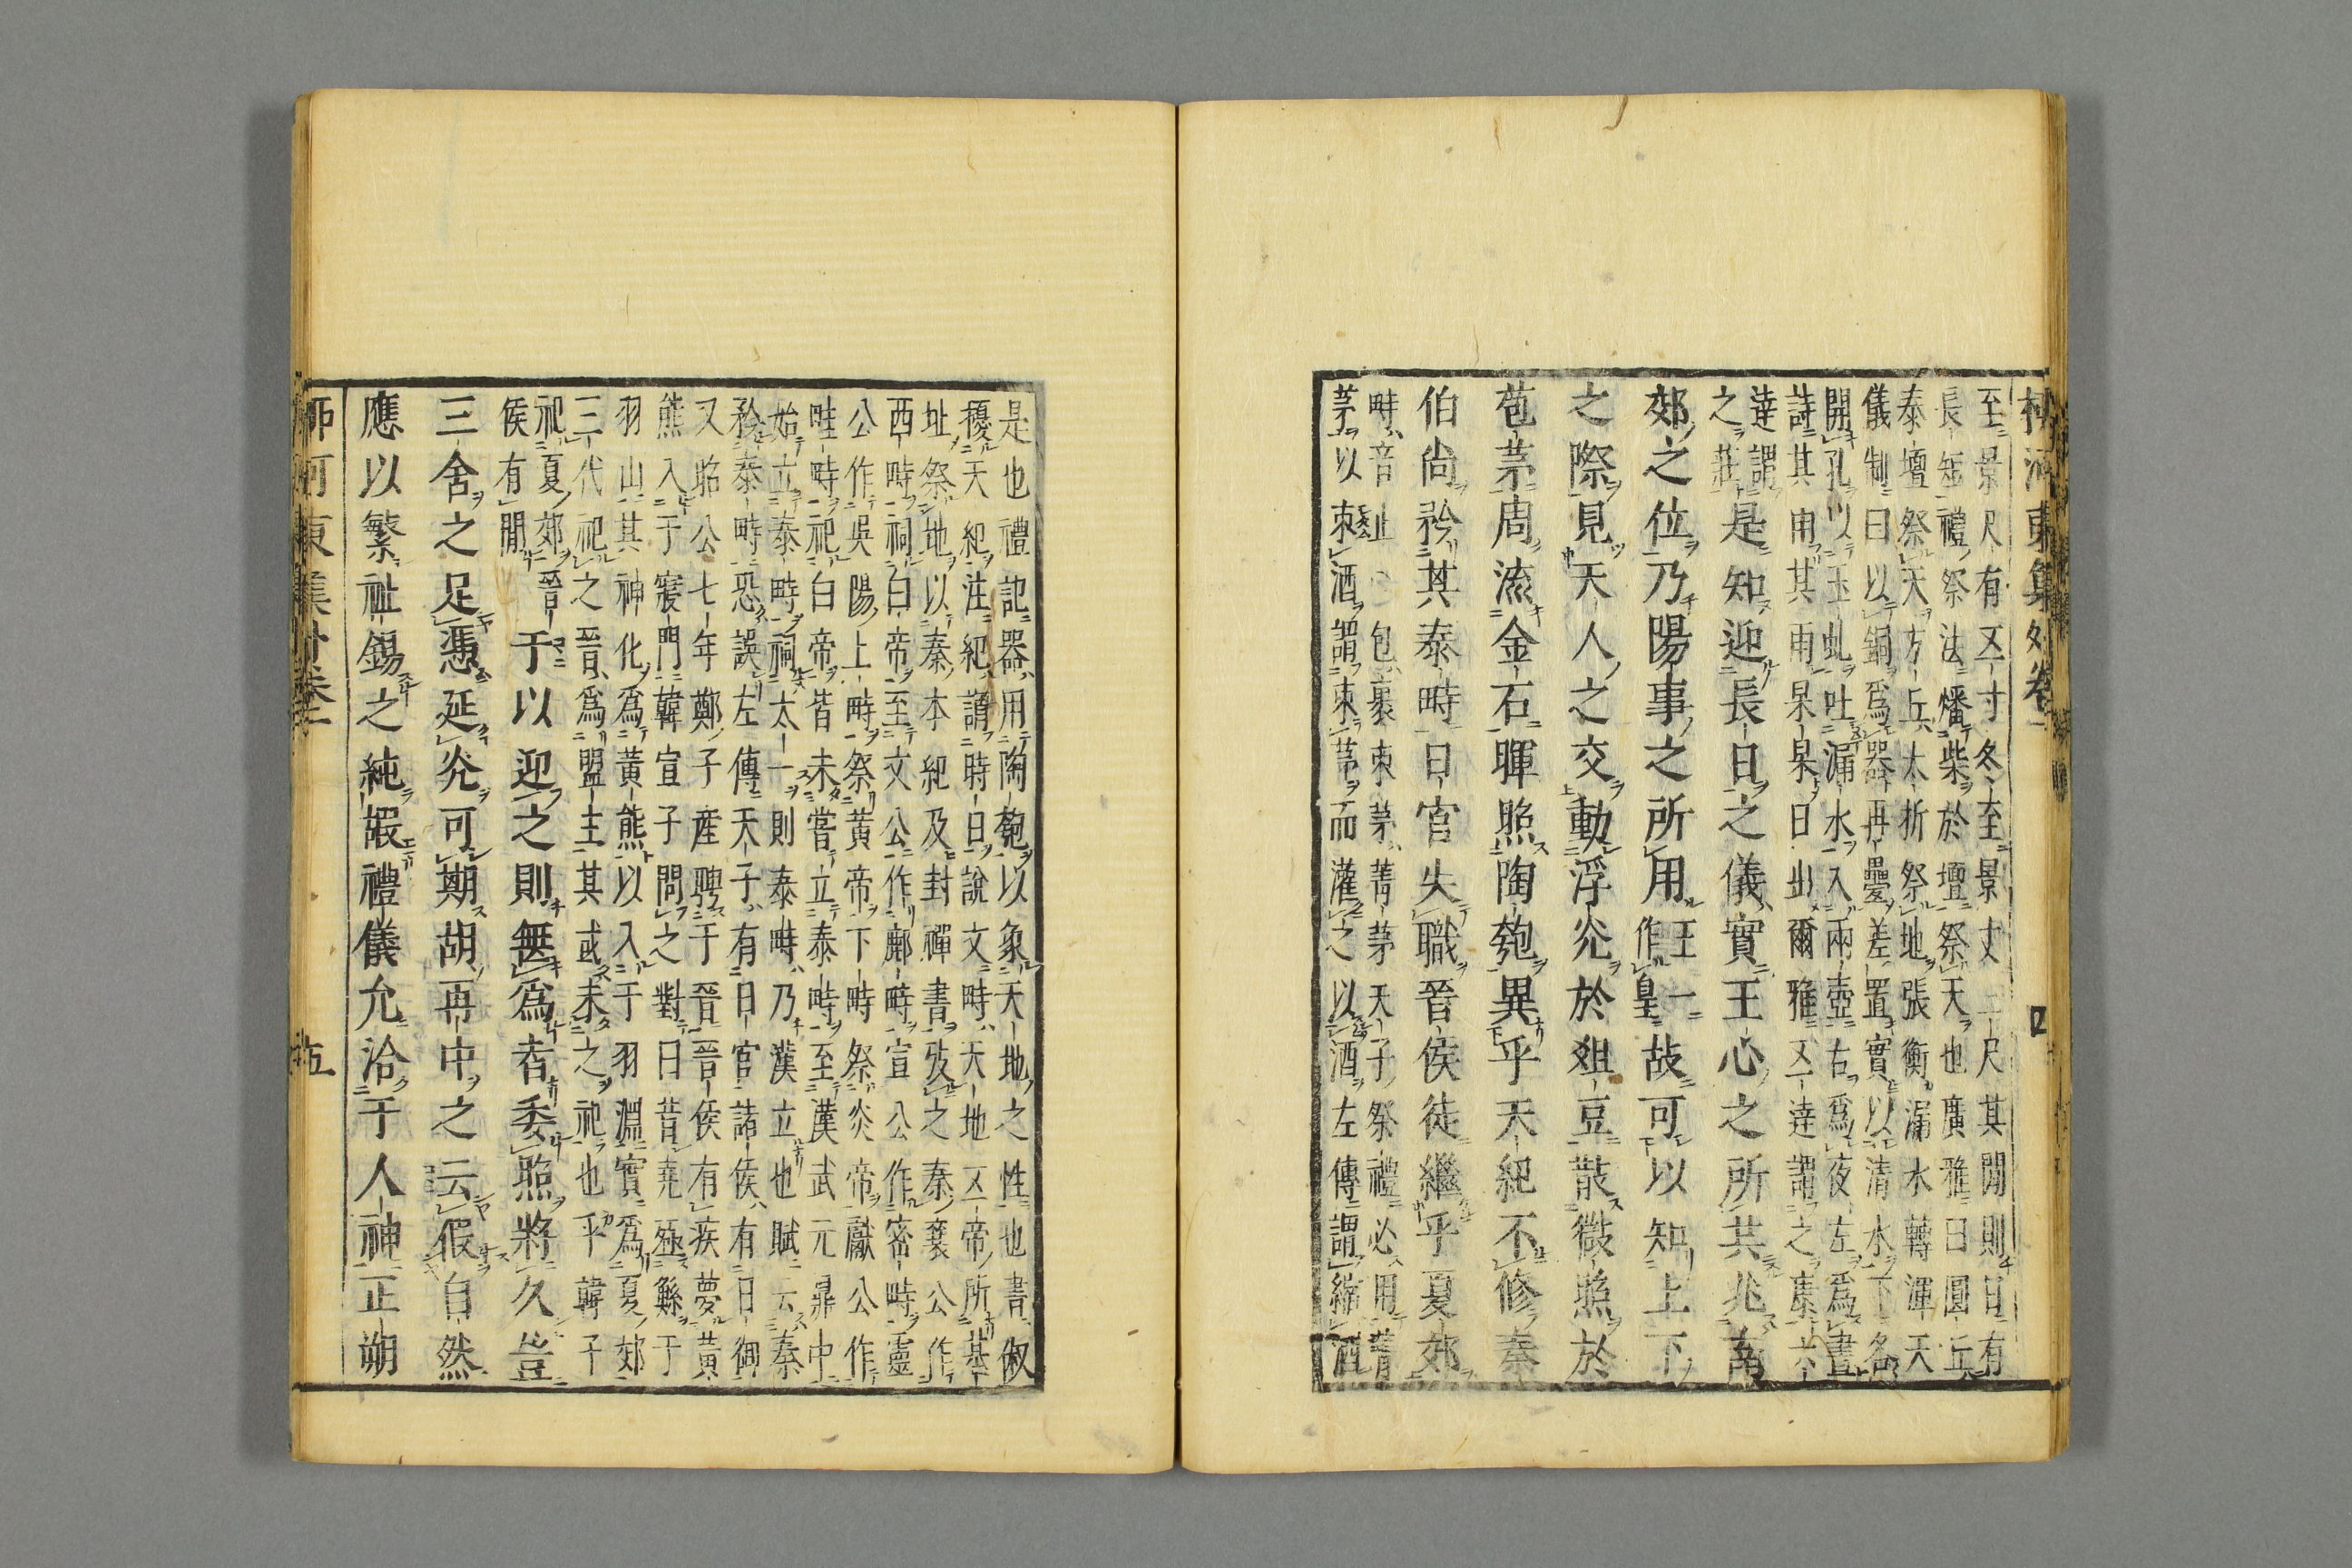 柳河東集外卷一
四
至景尺有五寸冬至景丈三尺其間則日有
長短禮祭法燔柴於壇祭天也廣雅曰圓丘
泰壇祭天方丘太折祭地張衡漏水轉渾天
儀制曰以銅爲器再疊差置實以清水下各
開孔以玉虬吐漏水入兩壺右爲夜左爲晝
詩其雨其雨杲杲日出爾雅五達謂之康六
達謂
之莊是知迎長日之儀實王心之所共兆南
郊之位乃陽事之所用王一
作皇故可以知上下
之際見天人之交動浮光於俎豆散微照於
苞茅周流金石暉照陶匏異乎天紀不修秦
伯尚矜其泰畤日官失職晉侯徒繼乎夏郊
畤音止○包裹束茅菁茅天子祭禮必用菁
茅以束酒謂束茅而灌之以酒左傳謂縮酒
是也禮記器用陶匏以象天地之性也書俶
擾天紀注紀謂時日說文畤天地五帝所基
址祭地以秦本紀及封禪書攷之秦襄公作
西畤祠白帝至文公作鄜畤宣公作密畤靈
公作吳陽上畤祭黃帝下畤祭炎帝獻公作
畦畤祀白帝皆未嘗立泰畤至漢武元鼎中
始立泰畤祠太一則泰畤乃漢立也賦云秦
矜泰畤恐誤左傳天子有日官諸侯有日御
又昭公七年鄭子產聘于晉晉侯有疾夢黃
熊入于寢門韓宣子問之對曰昔堯殛鯀于
羽山其神化爲黃熊以入于羽淵實爲夏郊
三代祀之晉爲盟主其或未之祀也乎韓子
祀夏郊晉
侯有閒于以迎之則無爲者委照將久豈
三舍之足憑延光可期胡再中之云假自然
應以繁祉錫之純嘏禮儀允洽于人神正朔
柳河東集外卷一
五